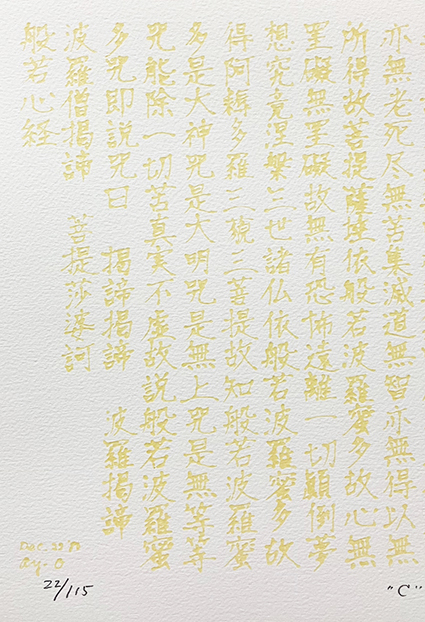 亦無老死尽無苦集滅道無智亦無得以無
所得故菩提薩埵依般若波羅蜜多故心無
罣礙無罣礙故無有恐怖遠離一切顛倒夢
想究竟涅槃三世諸仏依般若波羅蜜多故
得阿耨多羅三藐三菩提故知般若波羅蜜
多是大神咒是大明咒是無上咒是無等等
咒能除一切苦真実不虚故説般若波羅蜜
多咒即説咒曰 揭諦揭諦 波羅揭諦
波羅僧揭諦 菩提莎婆訶
般若心経
Dec.
Ay-O
22/115
"C"